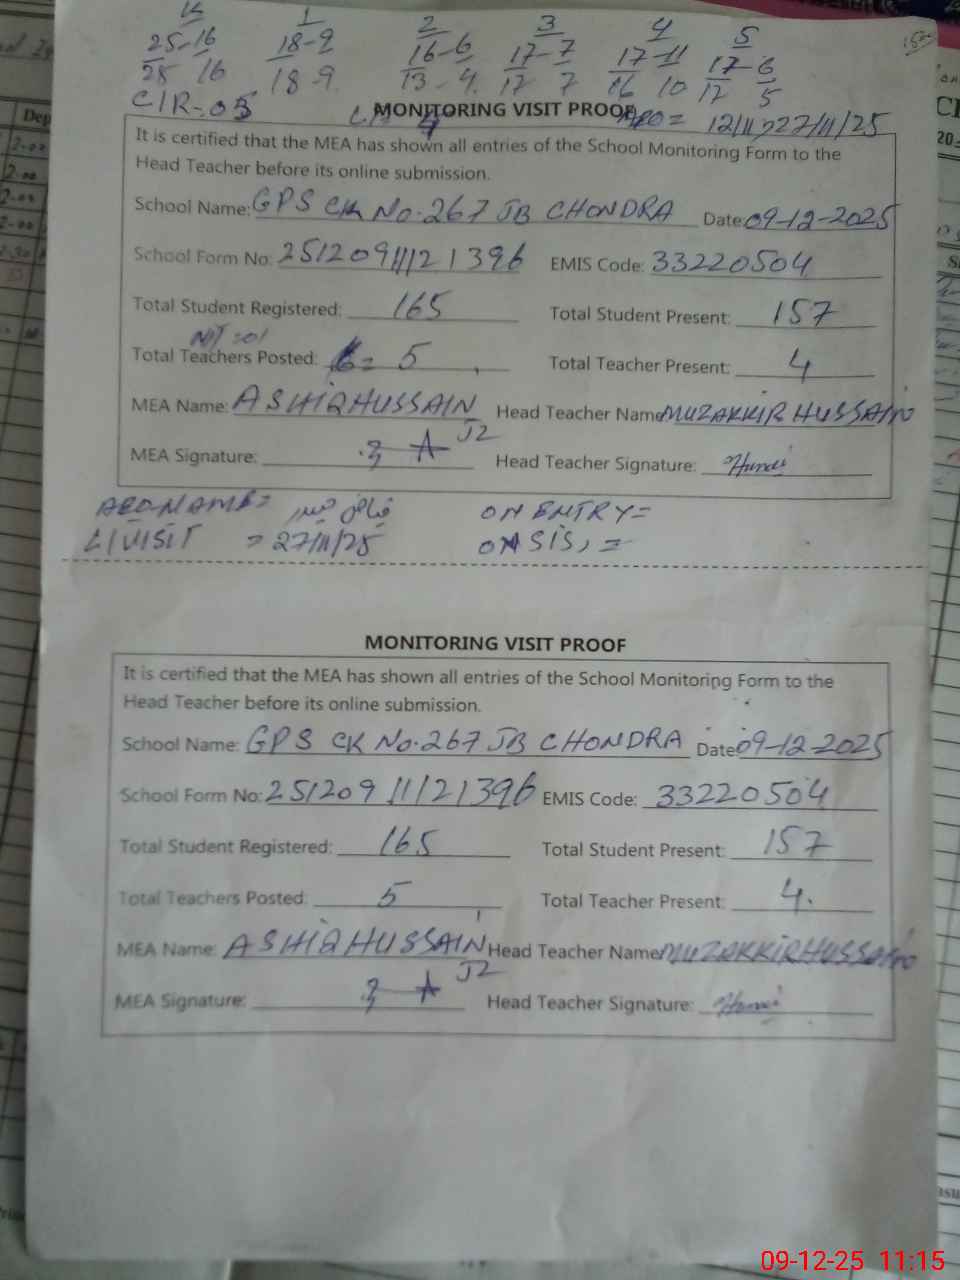 K 1 2 3 4 5
25-16 18-9 16-6 17-7 17-11 17-6
25 16 18-9 13-4 17 7 16 10 17 5
CIR-05
MONITORING VISIT PROOF
AEO= 12/11, 27/11/25
It is certified that the MEA has shown all entries of the School Monitoring Form to the
Head Teacher before its online submission.
School Name: GPS CK No.267 JB CHONDRA Date: 09-12-2025
School Form No: 25120911121396 EMIS Code: 33220504
Total Student Registered: 165 Total Student Present: 157
Total Teachers Posted: 5 Total Teacher Present: 4
MEA Name: ASHIQ HUSSAIN Head Teacher Name MUZAKKIR HUSSAIN
MEA Signature: J2 Head Teacher Signature:
AEO NAME= فیاض حیدر ON ENTRY=
L/VISIT = 27/11/25 ON SIS, =
MONITORING VISIT PROOF
It is certified that the MEA has shown all entries of the School Monitoring Form to the
Head Teacher before its online submission.
School Name: GPS CK No.267 JB CHONDRA Date: 09-12-2025
School Form No: 25120911121396 EMIS Code: 33220504
Total Student Registered: 165 Total Student Present: 157
Total Teachers Posted: 5 Total Teacher Present: 4.
MEA Name: ASHIQ HUSSAIN Head Teacher Name MUZAKKIR HUSSAIN
MEA Signature: J2 Head Teacher Signature:
09-12-25 11:15